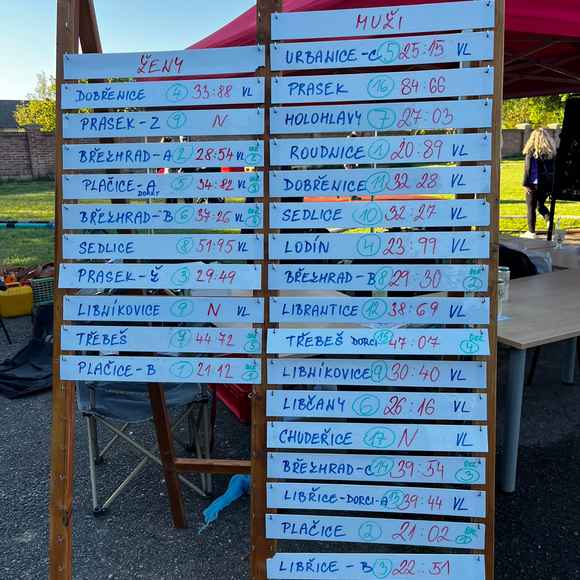 ŽENY
DOBŘENICE 4 33:88 VL
PRASEK-Z 9 N
BŘEZHRAD-A 2 28:54 VL
PLAČICE-A DOROST 5 34:82 VL
BŘEZHRAD-B 6 37:26 VL
SEDLICE 8 51:95 VL
PRASEK-Ž 3 29:49
LIBNÍKOVICE 9 N VL
TŘEBEŠ 7 44:72
PLAČICE-B 1 21:12
MUŽI
URBANICE-C 5 25:15 VL
PRASEK 16 84:66
HOLOHLAVY 7 27:03
ROUDNICE 1 20:89 VL
DOBŘENICE 11 32:28 VL
SEDLICE 10 32:27 VL
LODÍN 4 23:99 VL
BŘEZHRAD-B 8 29:30
LIBRANTICE 12 38:69 VL
TŘEBEŠ DORCI 15 47:07
LIBNÍKOVICE 9 30:40 VL
LIBČANY 6 26:16 VL
CHUDEŘICE 17 N VL
BŘEZHRAD-C 14 39:54
LIBŘICE-DORCI-A 13 39:44 VL
PLAČICE 2 21:02
LIBŘICE-B 3 22:51